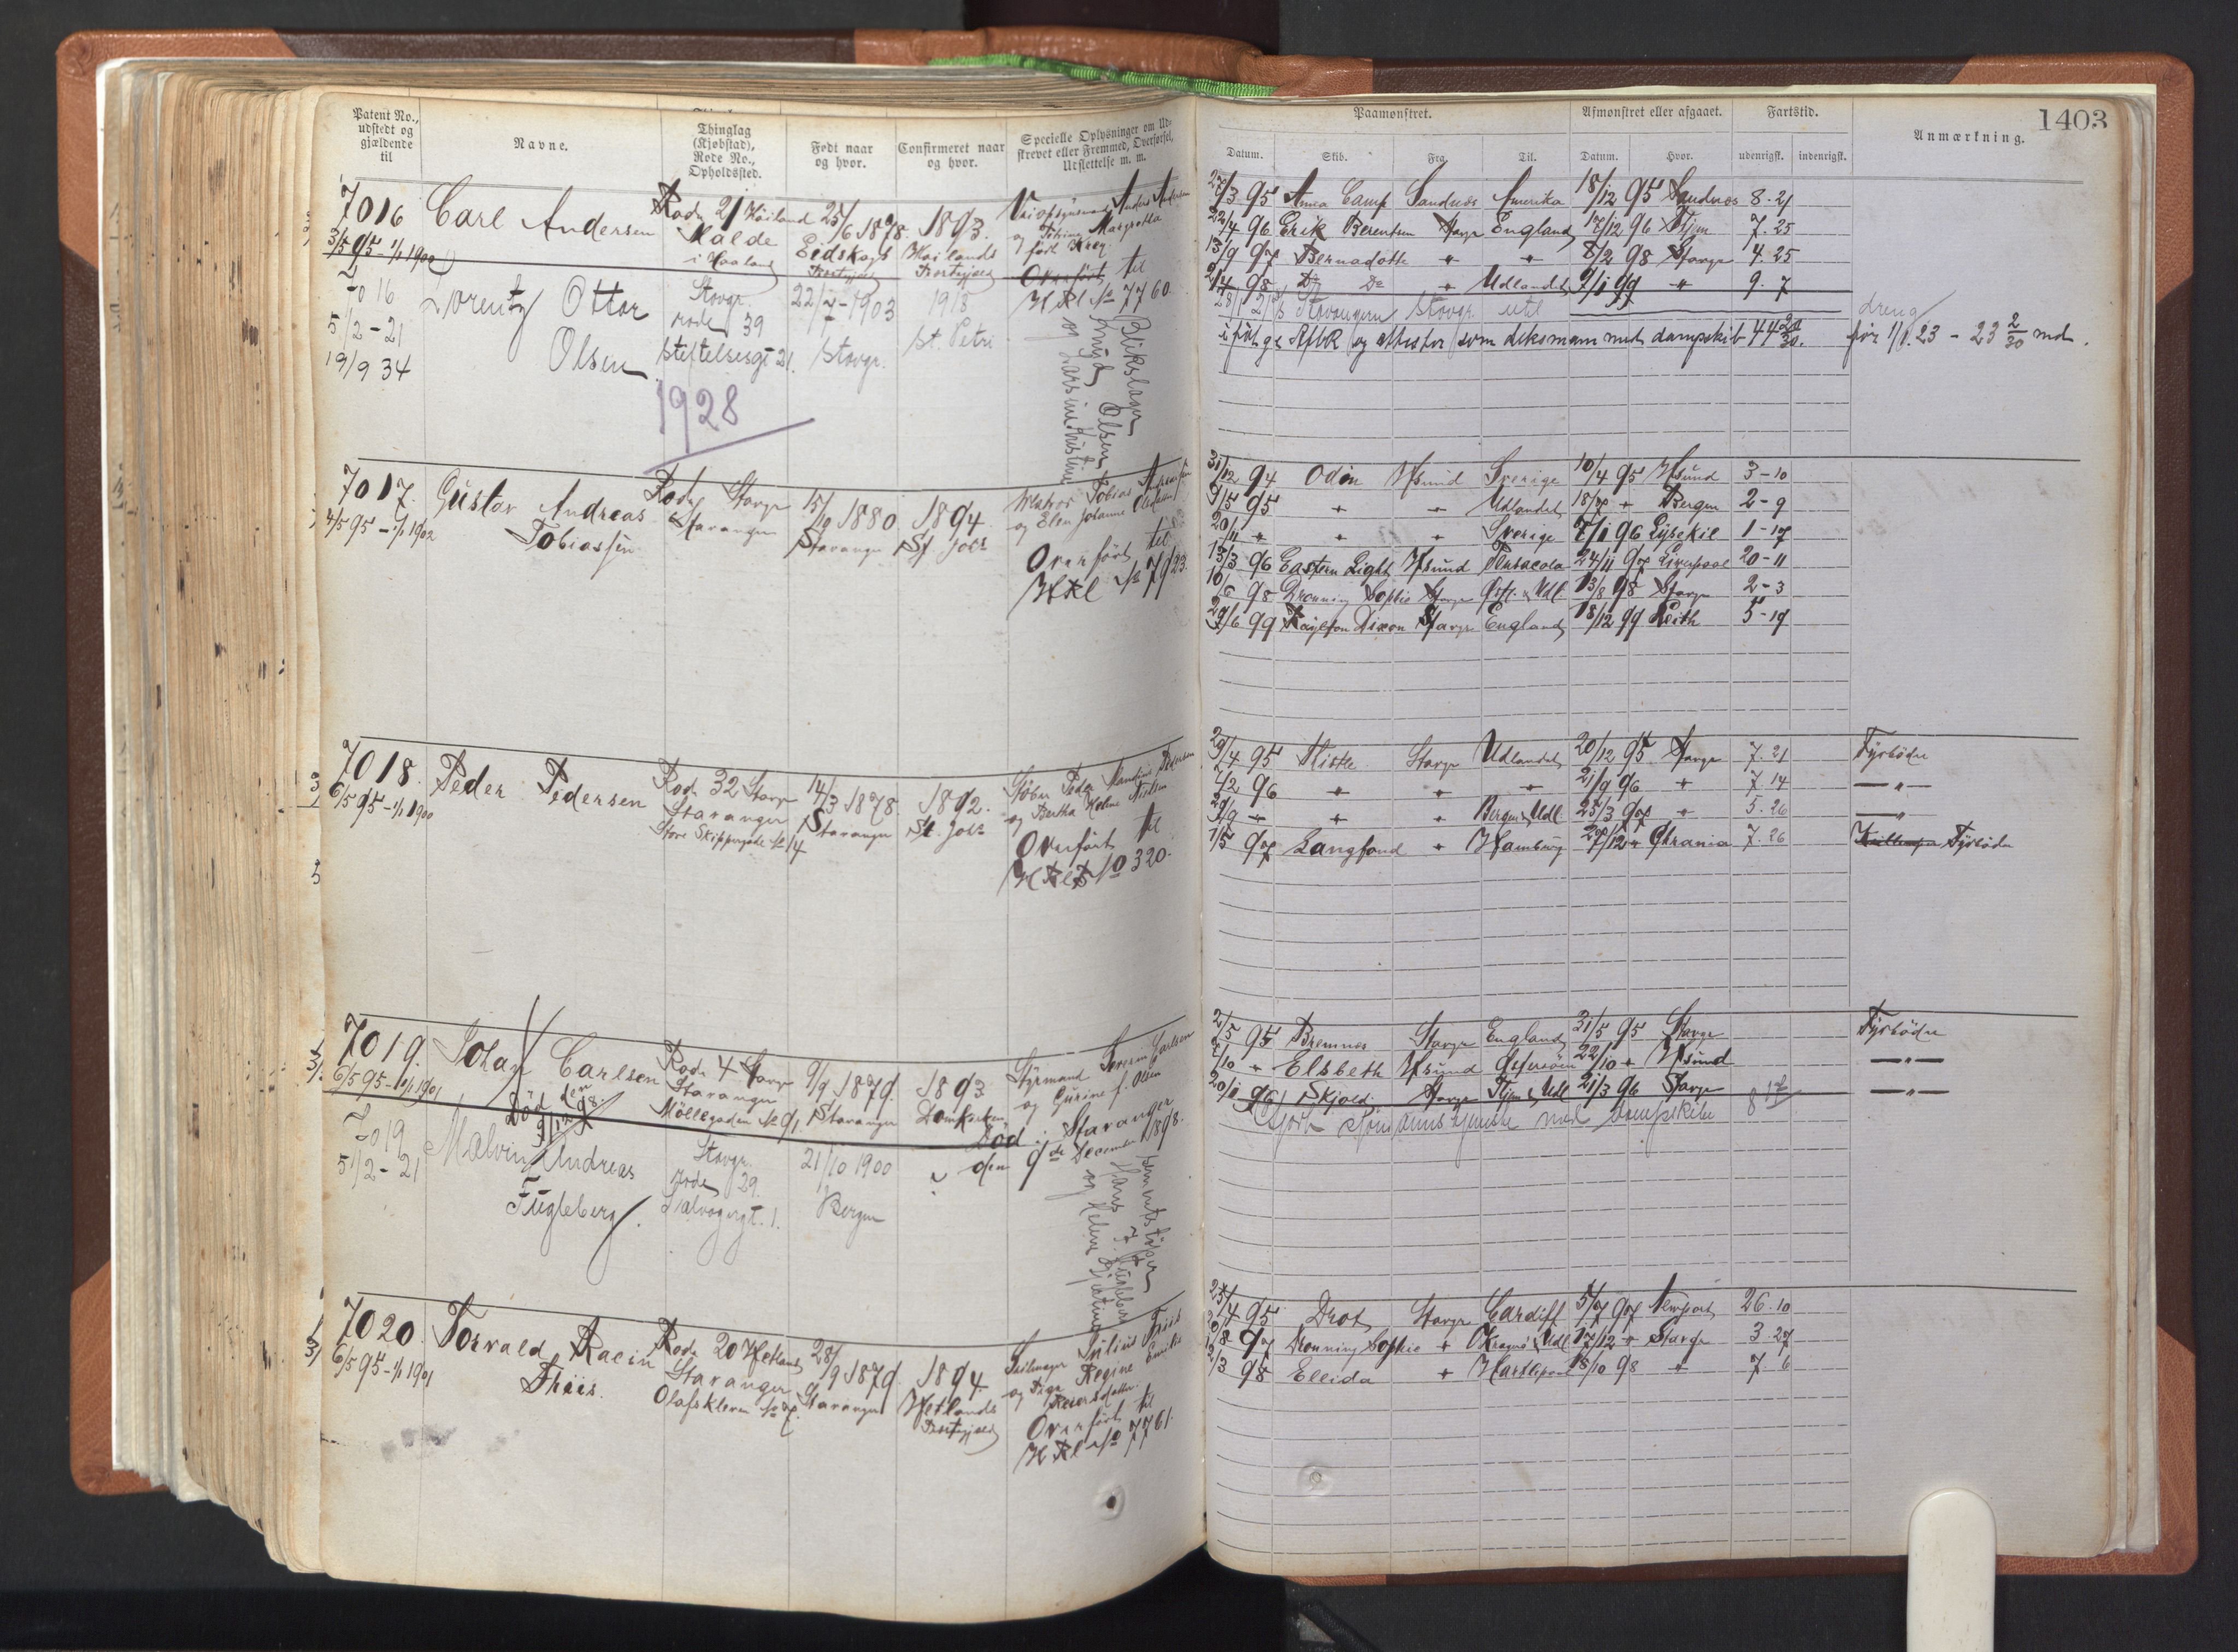 Patent No.,
udstedt og
gjældende
til
Navne.
Thinglag
(Kjøbstad),
Rode No.,
Opholdssted.
Født naar
og hvor.
Confirmeret naar
og hvor.
Specielle Oplysninger om Ud-
skrevet eller Fremmed, Overførsel,
Udslettelse m. m.
7016
3/5 95 - 1/1 1900
Carl Andersen
Rode 21 Höiland
Malde
i Haaland
25/6 1878
Eidskogs
Prestegjeld
1893.
Höilands
Prestegjeld
Overført til
HRl No 7760
7016
5/2 - 21
19/9 34
Lorentz Ottar
Olsen
Stavgr.
rode 39
Stiftelsesgt 21.
22/7 - 1903
Stavgr.
1918
St. Petri
Blikslager
Olsen
1928
7017.
4/5 95 - 1/1 1902
Gustav Andreas
Tobiassen
Rode Stavgr
Stavanger
15/10 1880
Stavanger
1894
St. Johs
Matros Tobias
og Elen Johanne
Overført til
HRl No 7923.
7018.
6/5 95 - 1/1 1900
Peder Pedersen
Rode 32 Stavgr
Stavanger
Store Skippergade No 14
14/3 1878.
Stavanger
1892.
St. Johs
og Bertha
Overført til
No 320.
7019.
6/5 95 - 1/1 1901
Johan Carlsen
Död den
9/12 98.
Rode 4 Stavgr
Stavanger
Möllegaden No 91.
9/9 1879.
Stavanger
1893
Domkirken
Styrmand Severin Carlsen
og Gurine f. Olsen
Död i Stavanger
den 9de December 1898.
7019
5/2 - 21
Malvin Andreas
Fugleberg
Stavgr.
rode 29.
21/10 1900
Bergen
7020.
6/5 95 - 1/1 1901
Torvald Racin
Thiis.
Rode 20 Hetland
Stavanger
Olafskleven No 7.
28/9 1879.
Stavanger
1894.
Hetlands
Prestegjeld
Julius Friis
og Regine Emilie
Overført til
HRl No 7761.
1403
Paamønstret.
Afmønstret eller afgaaet.
Fartstid.
Anmærkning.
Datum.
Skib.
Fra.
Til.
Datum.
Hvor.
udenrigsk.
indenrigsk.
27/3 95 Anna Camp Sandnæs Amerika 18/12 95 Sandnæs 8.21
22/4 96 Erik Berentsen Stavgr England 17/12 96 Tjen 7.25
13/9 97 Bernadotte " " 8/2 98 Stavgr 4.25
2/4 98 Do Do " Udlandet 9/1 99 " 9.7
Stavangeren Stavgr. utl
dreng
i følge AfbR og attester som deksmann med dampskib 44 20/30.
før 1/1.23 - 23 2/30 md.
31/12 94 Odin Hsund Sverige 10/4 95 Hsund 3-10
9/5 95 " " Udlandet 18/7 " Bergen 2-9
20/11 " " " Sverige 7/1 96 Lysekil 1-17
13/3 96 Eastern Light Hsund Pensacola 24/11 97 Liverpool 20-11
10/6 98 Dronning Sophie Stavgr Udl. 13/8 98 Stavgr 2-3
29/6 99 Raylton Dixon Stavgr England 18/12 99 Leith 5-19
29/4 95 Kistte Stavgr Udlandet 20/12 95 Stavgr 7.21 Fyrböder
7/2 96 " " " 21/9 96 " 7 14 — " —
29/9 " " " Bergen & Udl. 25/3 97 " 5.26 — " —
1/5 97 Langfond " Hamburg 27/12 " Chrania 7.26 Fyrböder
2/5 95 Bremnes Stavgr England 31/5 95 Stavgr Fyrböder
7/10 " Elsbeth Hsund 22/10 " Hsund — " —
20/1 96 Skjold. Stavgr Udl 21/3 96 Stavgr — " —
Gjort tjeneste med dampskibe
25/4 95 Drot Stavgr Cardiff 5/7 97 Newport 26.10
20/8 97 Dronning Sophie " Udl 17/12 " Stavgr 3.27
12/3 98 Ellida " Hartlepool 18/10 98 " 7.6